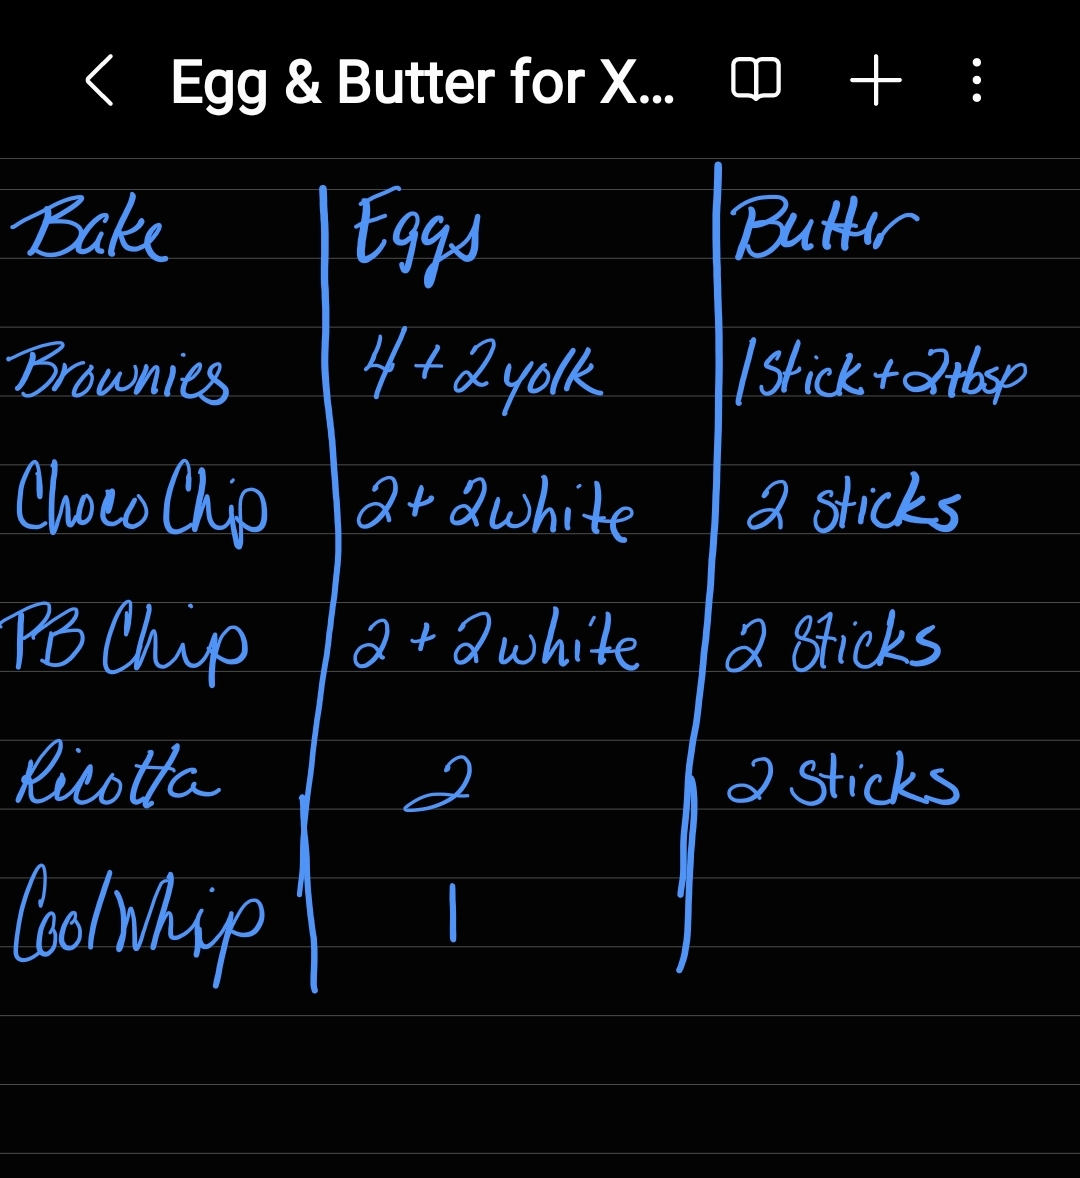 Egg & Butter for X...
Bake Eggs Butter
Brownies 4 + 2 yolk 1 Stick + 2 tbsp
Choco Chip 2 + 2 white 2 sticks
PB Chip 2 + 2 white 2 Sticks
Ricotta 2 2 Sticks
Cool Whip 1